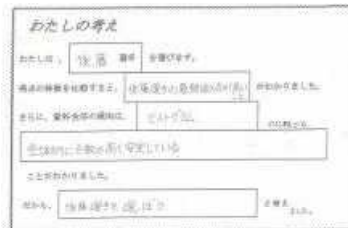 わたしの考え
わたしは、 後藤 選手 を選びます。
得点の特徴を比較すると、 後藤選手は最頻値が高い がわかりました。
さらに、 ヒストグラム
全体的に点数が高く安定している
ことがわかりました。
だから、 後藤選手を選ぼう と考え
ました。